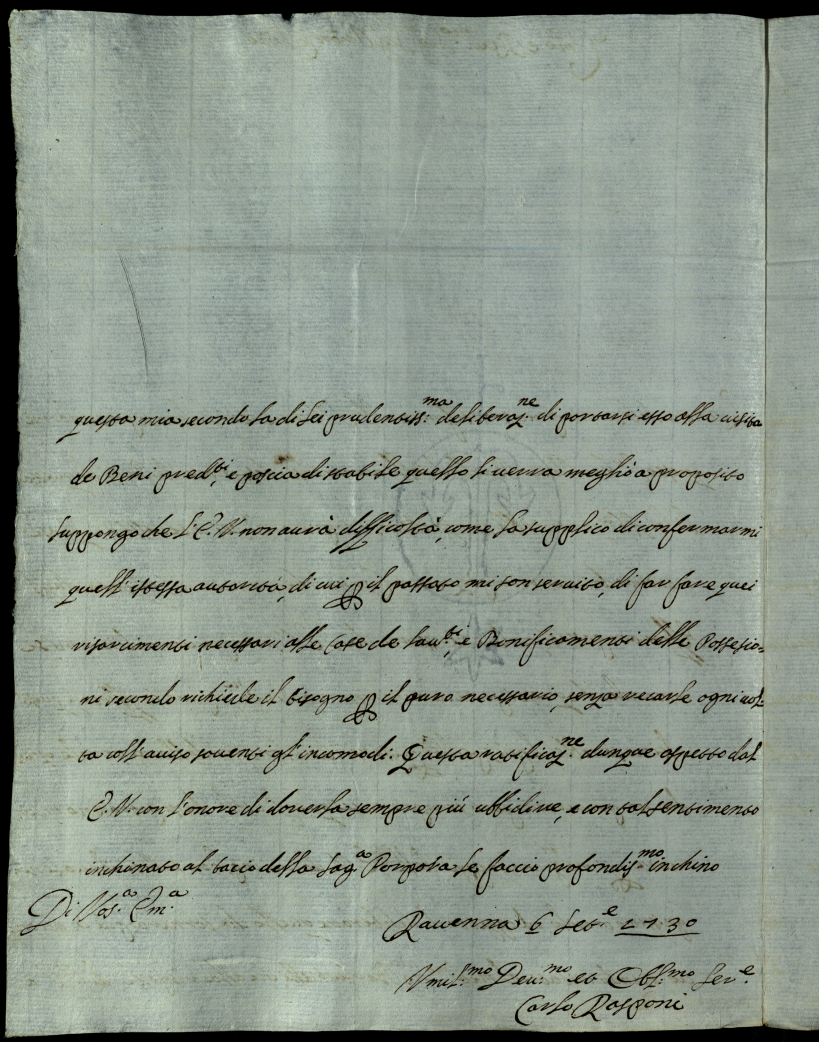 questa mia secondo la di lei prudentiss:ma deliberaz:ne di portarsi esso alla visita
de Beni pred:ti, e poscia di stabile quello li verra meglio a proposito
suppongo che l'E.V. non aurà difficoltà, come la supplico di confermarmi
quell'istessa autorità, di cui p il passato mi son servito, di far fare quei
risarcimenti necessari alle Case de Lau:ti, e Bonificamenti delle Possesio=
ni secondo richiede il bisogno p il puro necessario, senza recarle ogni vol=
ta coll'auiso soventi gl'incomodi: Questa ratificaz:ne dunque aspetto dal
E.V. con l'onore di doverla sempre più ubbidire, e con tal sentimento
inchinato al bacio della Sag:a Porpora le faccio profondis:mo inchino
Di Vos:a Em:a
Ravenna 6 Set:e 1730
Vmil:mo Deu:mo et Obl:mo Ser:e
Carlo Rasponi